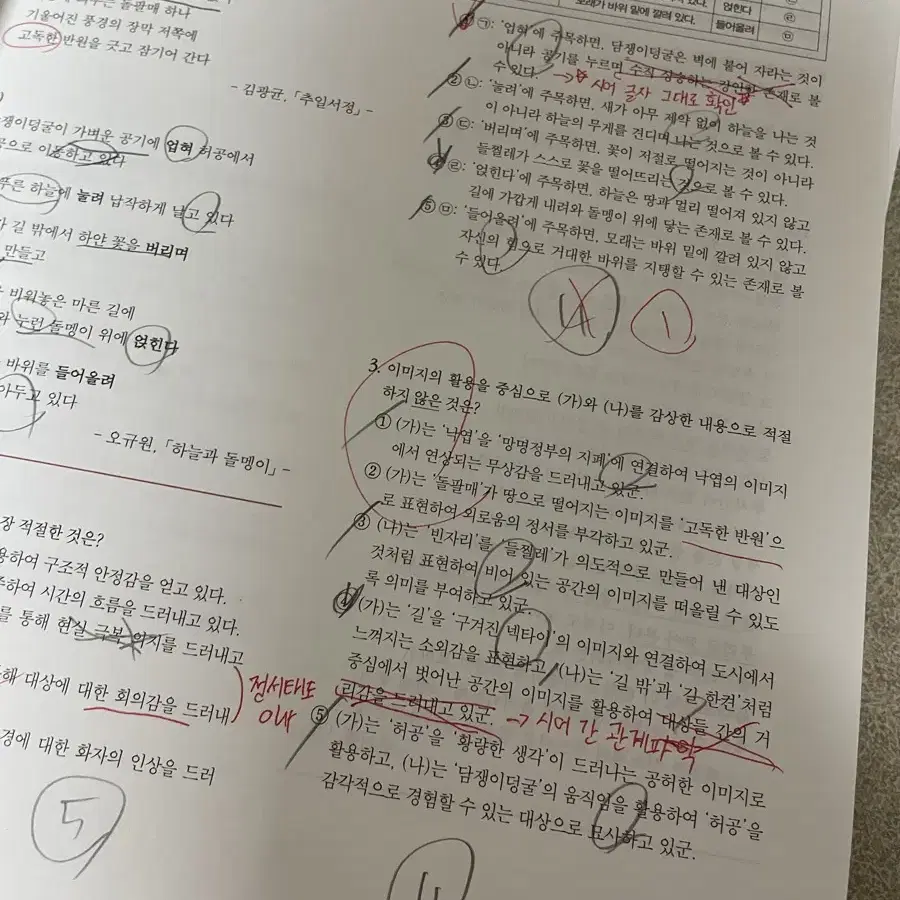 기울어진 풍경의 장막 저쪽에
고독한 반원을 긋고 잠기어 간다
- 김광균, 「추일서정」 -
쟁이덩굴이 가벼운 공기에 업혀 허공에서
공으로 이동하고 있다
푸른 하늘에 눌려 납작하게 날고 있다
가 길 밖에서 하얀 꽃을 버리며
만들고
비워놓은 마른 길에
와 누런 돌멩이 위에 얹힌다
바위를 들어올려
아두고 있다
- 오규원, 「하늘과 돌멩이」 -
장 적절한 것은?
용하여 구조적 안정감을 얻고 있다.
주하여 시간의 흐름을 드러내고 있다.
를 통해 현실 극복 의지를 드러내고
대상에 대한 회의감을 드러내
정서태도
이해
경에 대한 화자의 인상을 드러
5
모래가 바위 밑에 깔려 있다. 들어올려 ㉤
얹힌다 ㉣
㉠: '업혀'에 주목하면, 담쟁이덩굴은 벽에 붙어 자라는 것이
아니라 공기를 누르면 수직 상승하는 강인한 존재로 볼
수 있다.
→ 시어 글자 그대로 확인
② ㉡: '눌려'에 주목하면, 새가 아무 제약 없이 하늘을 나는 것
이 아니라 하늘의 무게를 견디며 나는 것으로 볼 수 있다.
③ ㉢: '버리며'에 주목하면, 꽃이 저절로 떨어지는 것이 아니라
들찔레가 스스로 꽃을 떨어뜨리는 것으로 볼 수 있다.
④ ㉣: '얹힌다'에 주목하면, 하늘은 땅과 멀리 떨어져 있지 않고
길에 가깝게 내려와 돌멩이 위에 닿는 존재로 볼 수 있다.
⑤ ㉤: '들어올려'에 주목하면, 모래는 바위 밑에 깔려 있지 않고
자신의 힘으로 거대한 바위를 지탱할 수 있는 존재로 볼
수 있다.
4 1
3. 이미지의 활용을 중심으로 (가)와 (나)를 감상한 내용으로 적절
하지 않은 것은?
① (가)는 '낙엽'을 '망명정부의 지폐'에 연결하여 낙엽의 이미지
에서 연상되는 무상감을 드러내고 있군.
② (가)는 '돌팔매'가 땅으로 떨어지는 이미지를 '고독한 반원'으
로 표현하여 외로움의 정서를 부각하고 있군.
③ (나)는 '빈자리'를 '들찔레'가 의도적으로 만들어 낸 대상인
것처럼 표현하여 비어 있는 공간의 이미지를 떠올릴 수 있도
록 의미를 부여하고 있군.
④ (가)는 '길'을 '구겨진 넥타이'의 이미지와 연결하여 도시에서
느껴지는 소외감을 표현하고, (나)는 '길 밖'과 '길 한켠'처럼
중심에서 벗어난 공간의 이미지를 활용하여 대상들 간의 거
리감을 드러내고 있군.
→ 시어 간 관계파악
⑤ (가)는 '허공'을 '황량한 생각'이 드러나는 공허한 이미지로
활용하고, (나)는 '담쟁이덩굴'의 움직임을 활용하여 '허공'을
감각적으로 경험할 수 있는 대상으로 묘사하고 있군.
4